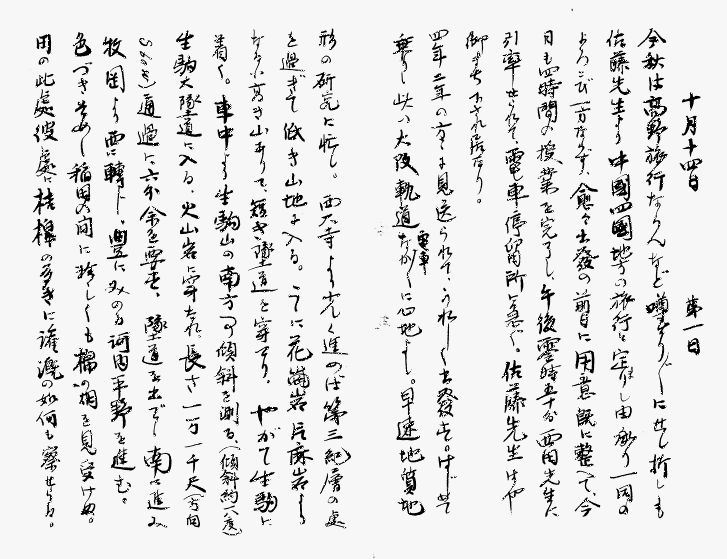 十月十四日　第一日
今秋は高野旅行ならんなど噂をりしにせし折しも
佐藤先生より中國四國地方の旅行と定りし由承り一同の
よろこび一方ならず、愈々出發の前日に用意既に整へて、今
日も四時間の授業を完了し、午後零時五十分西田先生に
引率せられて、電車停留所に急ぐ。佐藤先生はや
御まち下され居たり。
四年二年の方々に見送られて、うれしく出發す。はじめて
乗りし此の大阪軌道電車なかく に心地よし。早速地質地
形の研究に忙し。西大寺より少しく進めば第三紀層の處
を過ぎて低き山地に入る。こゝに花崗岩片麻岩より
なる小高き山ありて、短き隧道を穿てり。やがて生駒に
着く。車中より生駒山の南方の傾斜を測る、（傾斜約八度）
生駒大隧道に入る、火山岩に穿たれ、長さ一万一千尺（方向
）通過に六分余を要す、隧道を出でし南に進み
牧岡より西に轉じ、豊にみのる河内平野を進む。
色づきそめし稲田の間に珍しくも棉の畑を見受けぬ。
田の此處彼處に桔槹の多きに灌漑の如何も察せらる。